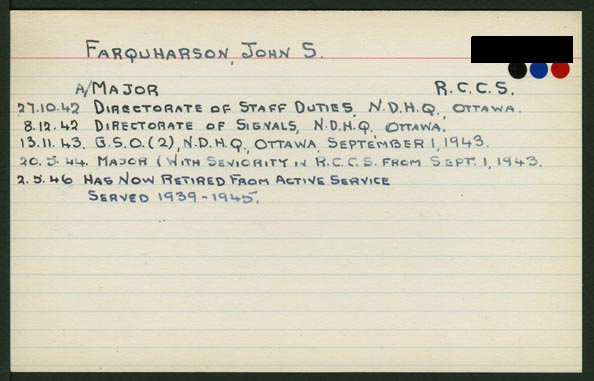 FARQUHARSON, JOHN S.
A/MAJOR R.C.C.S.
27.10.42 DIRECTORATE OF STAFF DUTIES, N.D.H.Q., OTTAWA.
8.12.42 DIRECTORATE OF SIGNALS, N.D.H.Q. OTTAWA.
13.11.43. G.S.O.(2), N.D.H.Q., OTTAWA, SEPTEMBER 1, 1943.
20.5.44. MAJOR (WITH SENIORITY IN R.C.C.S. FROM SEPT. 1, 1943.
2.5.46 HAS NOW RETIRED FROM ACTIVE SERVICE
SERVED 1939-1945.